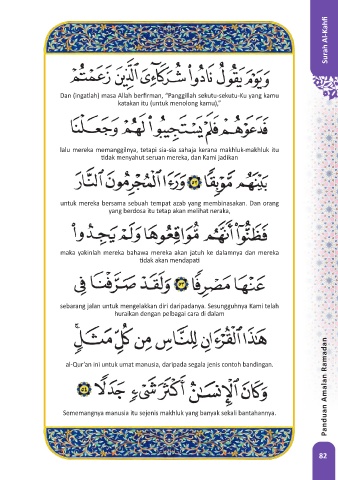 Surah Al-Kahfi
وَيَوْمَ يَقُولُ نَادُوا۟ شُرَكَآءِىَ ٱلَّذِينَ زَعَمْتُمْ
Dan (ingatlah) masa Allah berfirman, "Panggillah sekutu-sekutu-Ku yang kamu
katakan itu (untuk menolong kamu),"
فَدَعَوْهُمْ فَلَمْ يَسْتَجِيبُوا۟ لَهُمْ وَجَعَلْنَا
lalu mereka memanggilnya, tetapi sia-sia sahaja kerana makhluk-makhluk itu
tidak menyahut seruan mereka, dan Kami jadikan
بَيْنَهُم مَّوْبِقًا ٥٢ وَرَءَا ٱلْمُجْرِمُونَ ٱلنَّارَ
untuk mereka bersama sebuah tempat azab yang membinasakan. Dan orang
yang berdosa itu tetap akan melihat neraka,
فَظَنُّوٓا۟ أَنَّهُم مُّوَاقِعُوهَا وَلَمْ يَجِدُوا۟
maka yakinlah mereka bahawa mereka akan jatuh ke dalamnya dan mereka
tidak akan mendapati
عَنْهَا مَصْرِفًا ٥٣ وَلَقَدْ صَرَّفْنَا فِى
sebarang jalan untuk mengelakkan diri daripadanya. Sesungguhnya Kami telah
huraikan dengan pelbagai cara di dalam
هَٰذَا ٱلْقُرْءَانِ لِلنَّاسِ مِن كُلِّ مَثَلٍ ۚ
al-Qur'an ini untuk umat manusia, daripada segala jenis contoh bandingan.
وَكَانَ ٱلْإِنسَٰنُ أَكْثَرَ شَىْءٍ جَدَلًا ٥٤
Sememangnya manusia itu sejenis makhluk yang banyak sekali bantahannya.
Panduan Amalan Ramadan
82